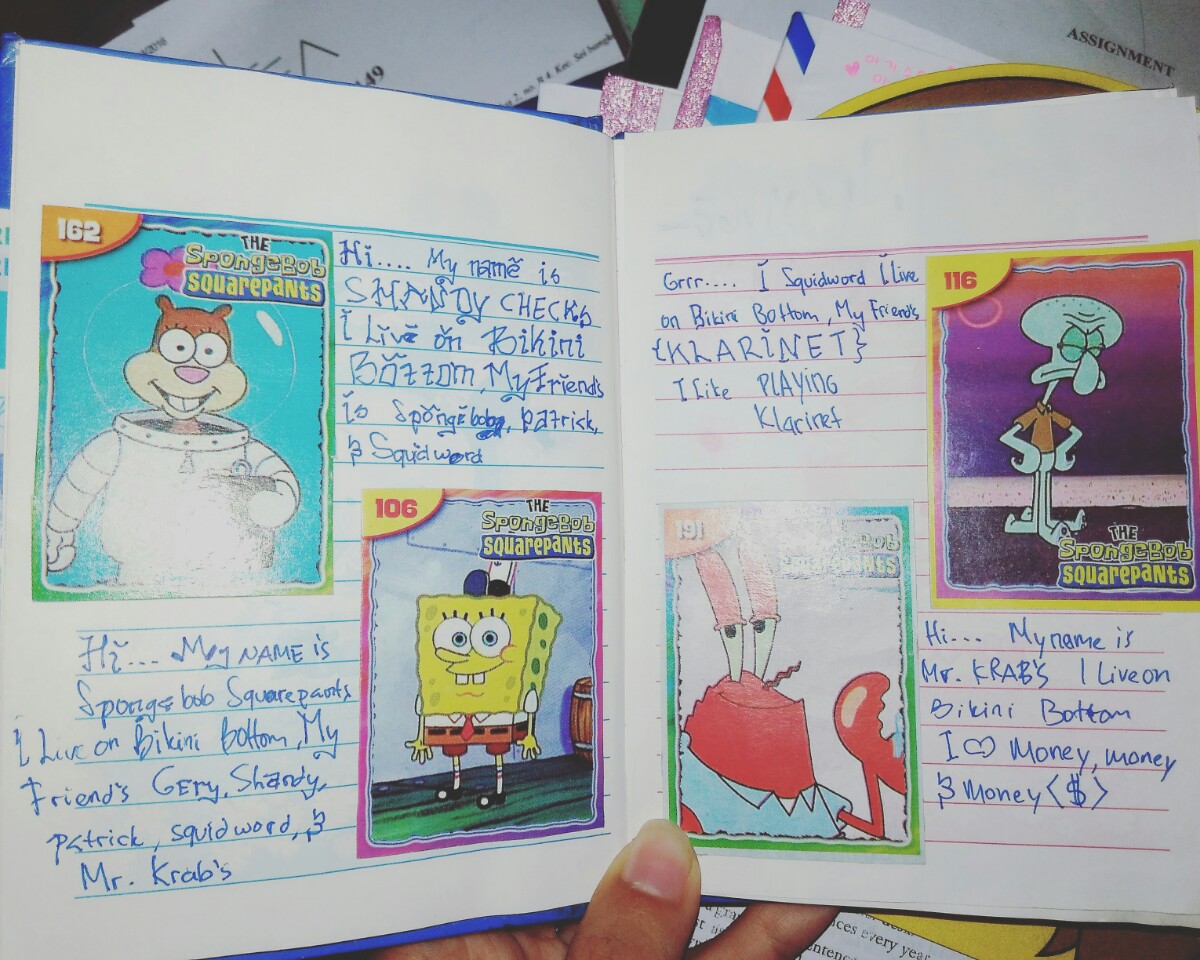 ASSIGNMENT
149
162
THE
SPONGEBOB
SQUAREPANTS
Hi.... My name is
SHANDY CHECKS
I Live on Bikini
Bozzom, My Friend's
is Spongebob, patrick,
& Squidword
106
THE
SPONGEBOB
SQUAREPANTS
Hi... My NAME is
Spongebob Squarepants
I Live on Bikini Bottom, My
Friend's GEry, Shandy,
patrick, squidword, &
Mr. Krab's
Grrr.... I Squidword I live
on Bikini Bottom, My Friend's
{KLARINET}
I like PLAYING
Klarinet
116
THE
SPONGEBOB
SQUAREPANTS
191
Hi... My name is
Mr. KRAB'S I Live on
Bikini Bottom
I ♡ Money, money
& Money <$>
nces every year